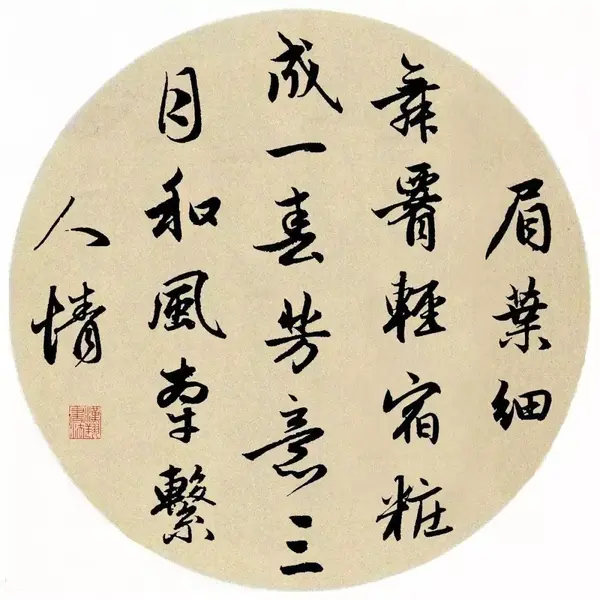 眉葉細
舞腰輕宿粧
成一春芳意三
月和風牽繫
人情
漢翔書法